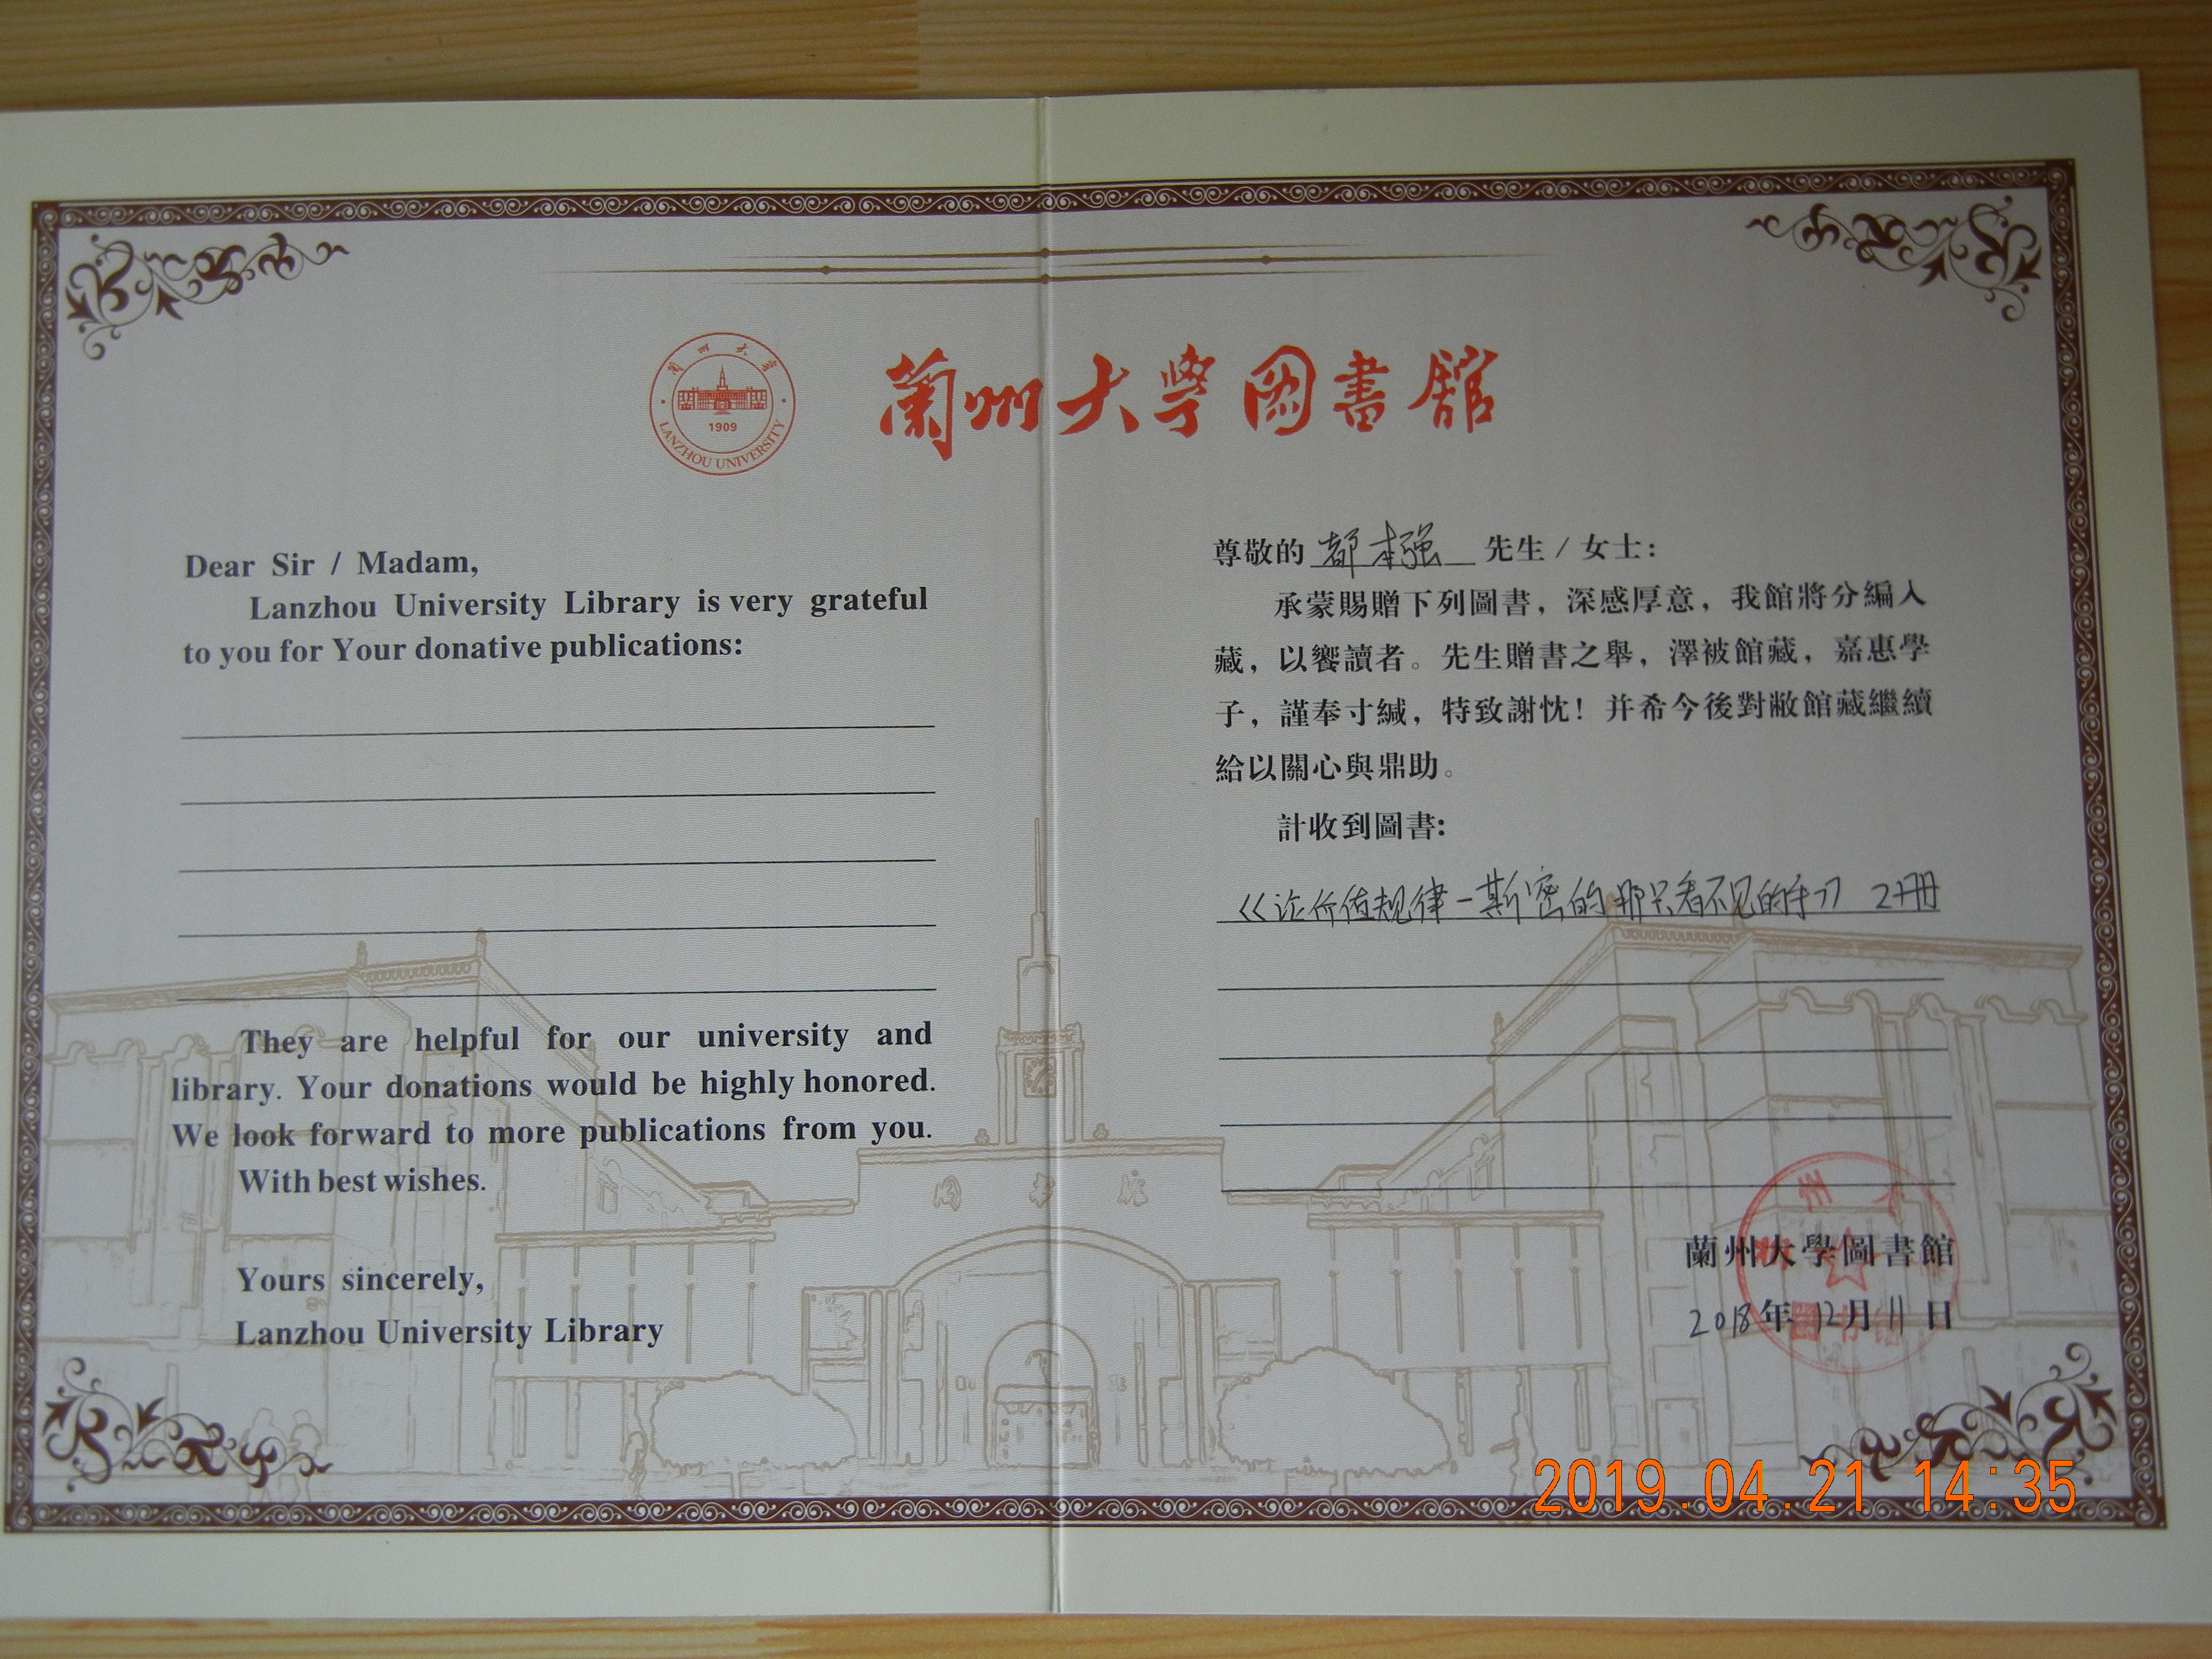 蘭州大學
1909
LANZHOU UNIVERSITY
蘭州大學圖書館
Dear Sir / Madam,
Lanzhou University Library is very grateful
to you for Your donative publications:
They are helpful for our university and
library. Your donations would be highly honored.
We look forward to more publications from you.
With best wishes.
Yours sincerely,
Lanzhou University Library
尊敬的 都本强 先生 / 女士：
承蒙賜贈下列圖書，深感厚意，我館將分編入
藏，以饗讀者。先生贈書之舉，澤被館藏，嘉惠學
子，謹奉寸緘，特致謝忱！并希今後對敝館藏繼續
給以關心與鼎助。
計收到圖書：
《论价值规律-斯密的那只看不见的手》 2册
蘭州大學圖書館
2018年12月11日
图书馆
2019.04.21 14:35